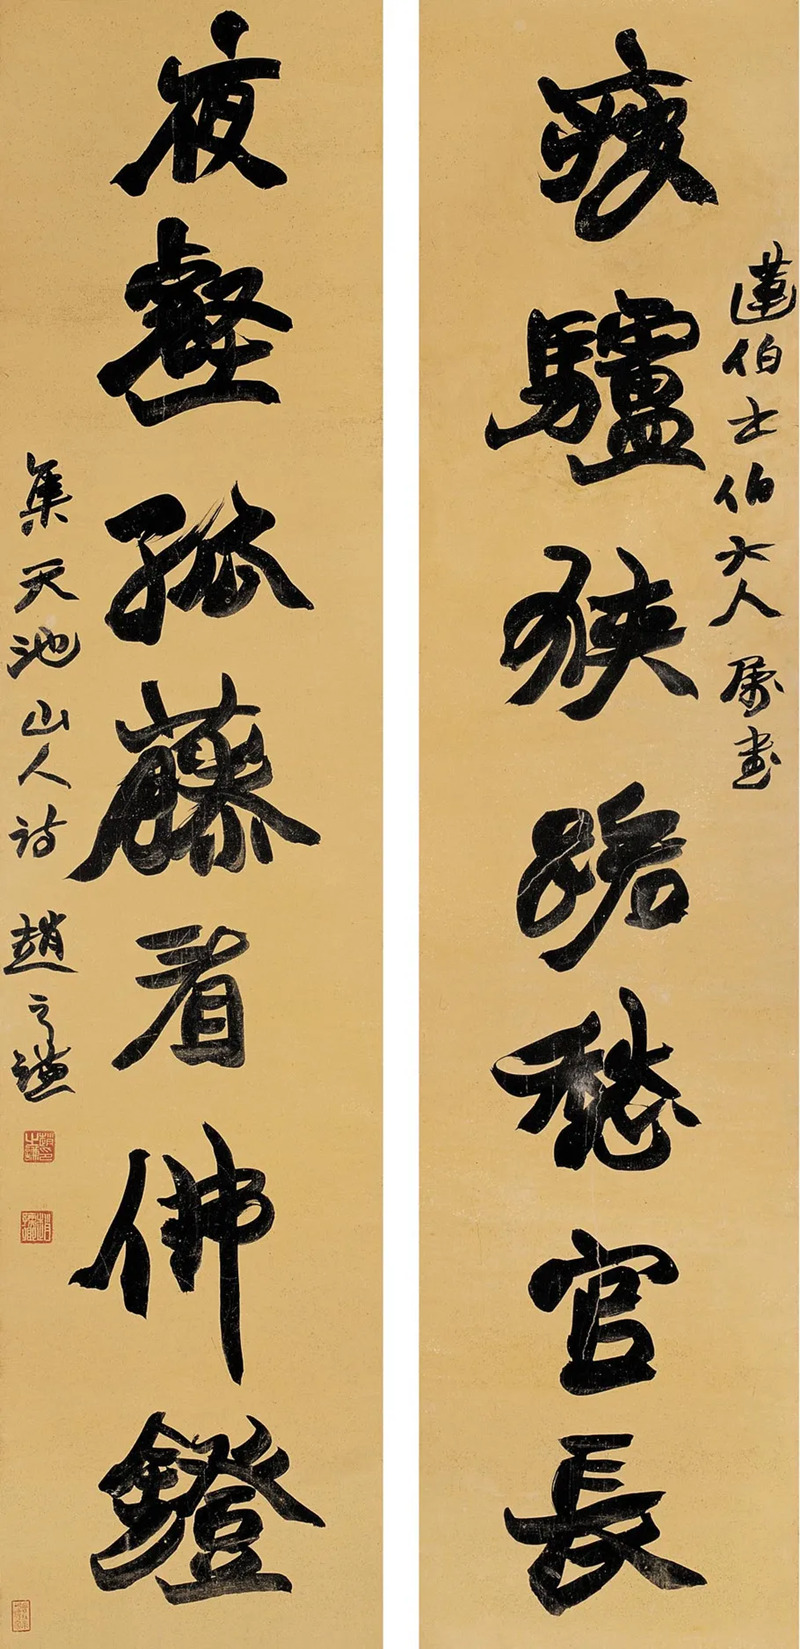 蓮伯士伯大人屬書
疲驢狹路愁官長
夜壑孤藤看佛鐙
集天池山人詩 趙之謙